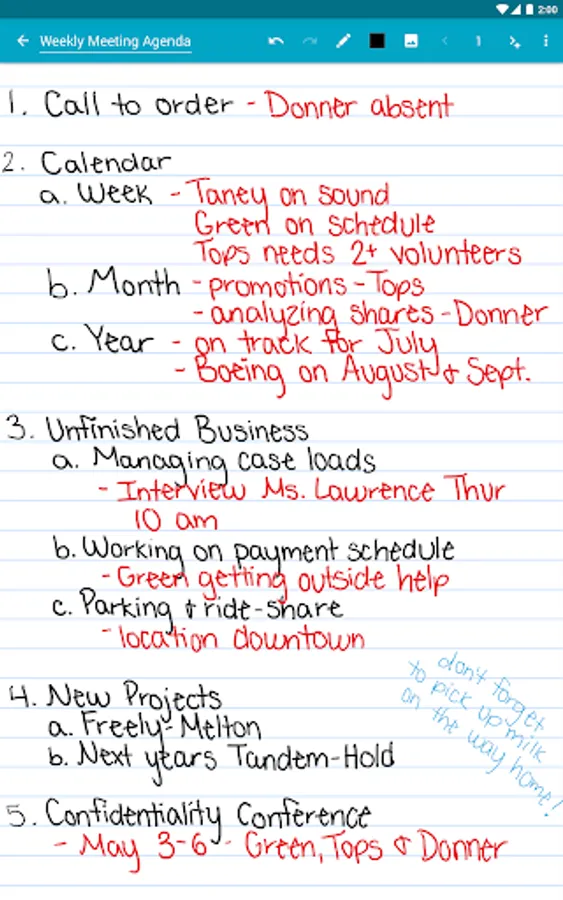 2:00
Weekly Meeting Agenda
1
1. Call to order - Donner absent
2. Calendar
a. Week - Taney on sound
Green on schedule
Tops needs 2+ volunteers
b. Month - promotions - Tops
- analyzing shares - Donner
c. Year - on track for July
- Boeing on August & Sept.
3. Unfinished Business
a. Managing case loads
- Interview Ms. Lawrence Thur
10 am
b. Working on payment schedule
- Green getting outside help
c. Parking & ride-share
- location downtown
don't forget
to pick up milk
on the way home!
4. New Projects
a. Freely-Melton
b. Next years Tandem-Hold
5. Confidentiality Conference
- May 3-6 - Green, Tops & Donner